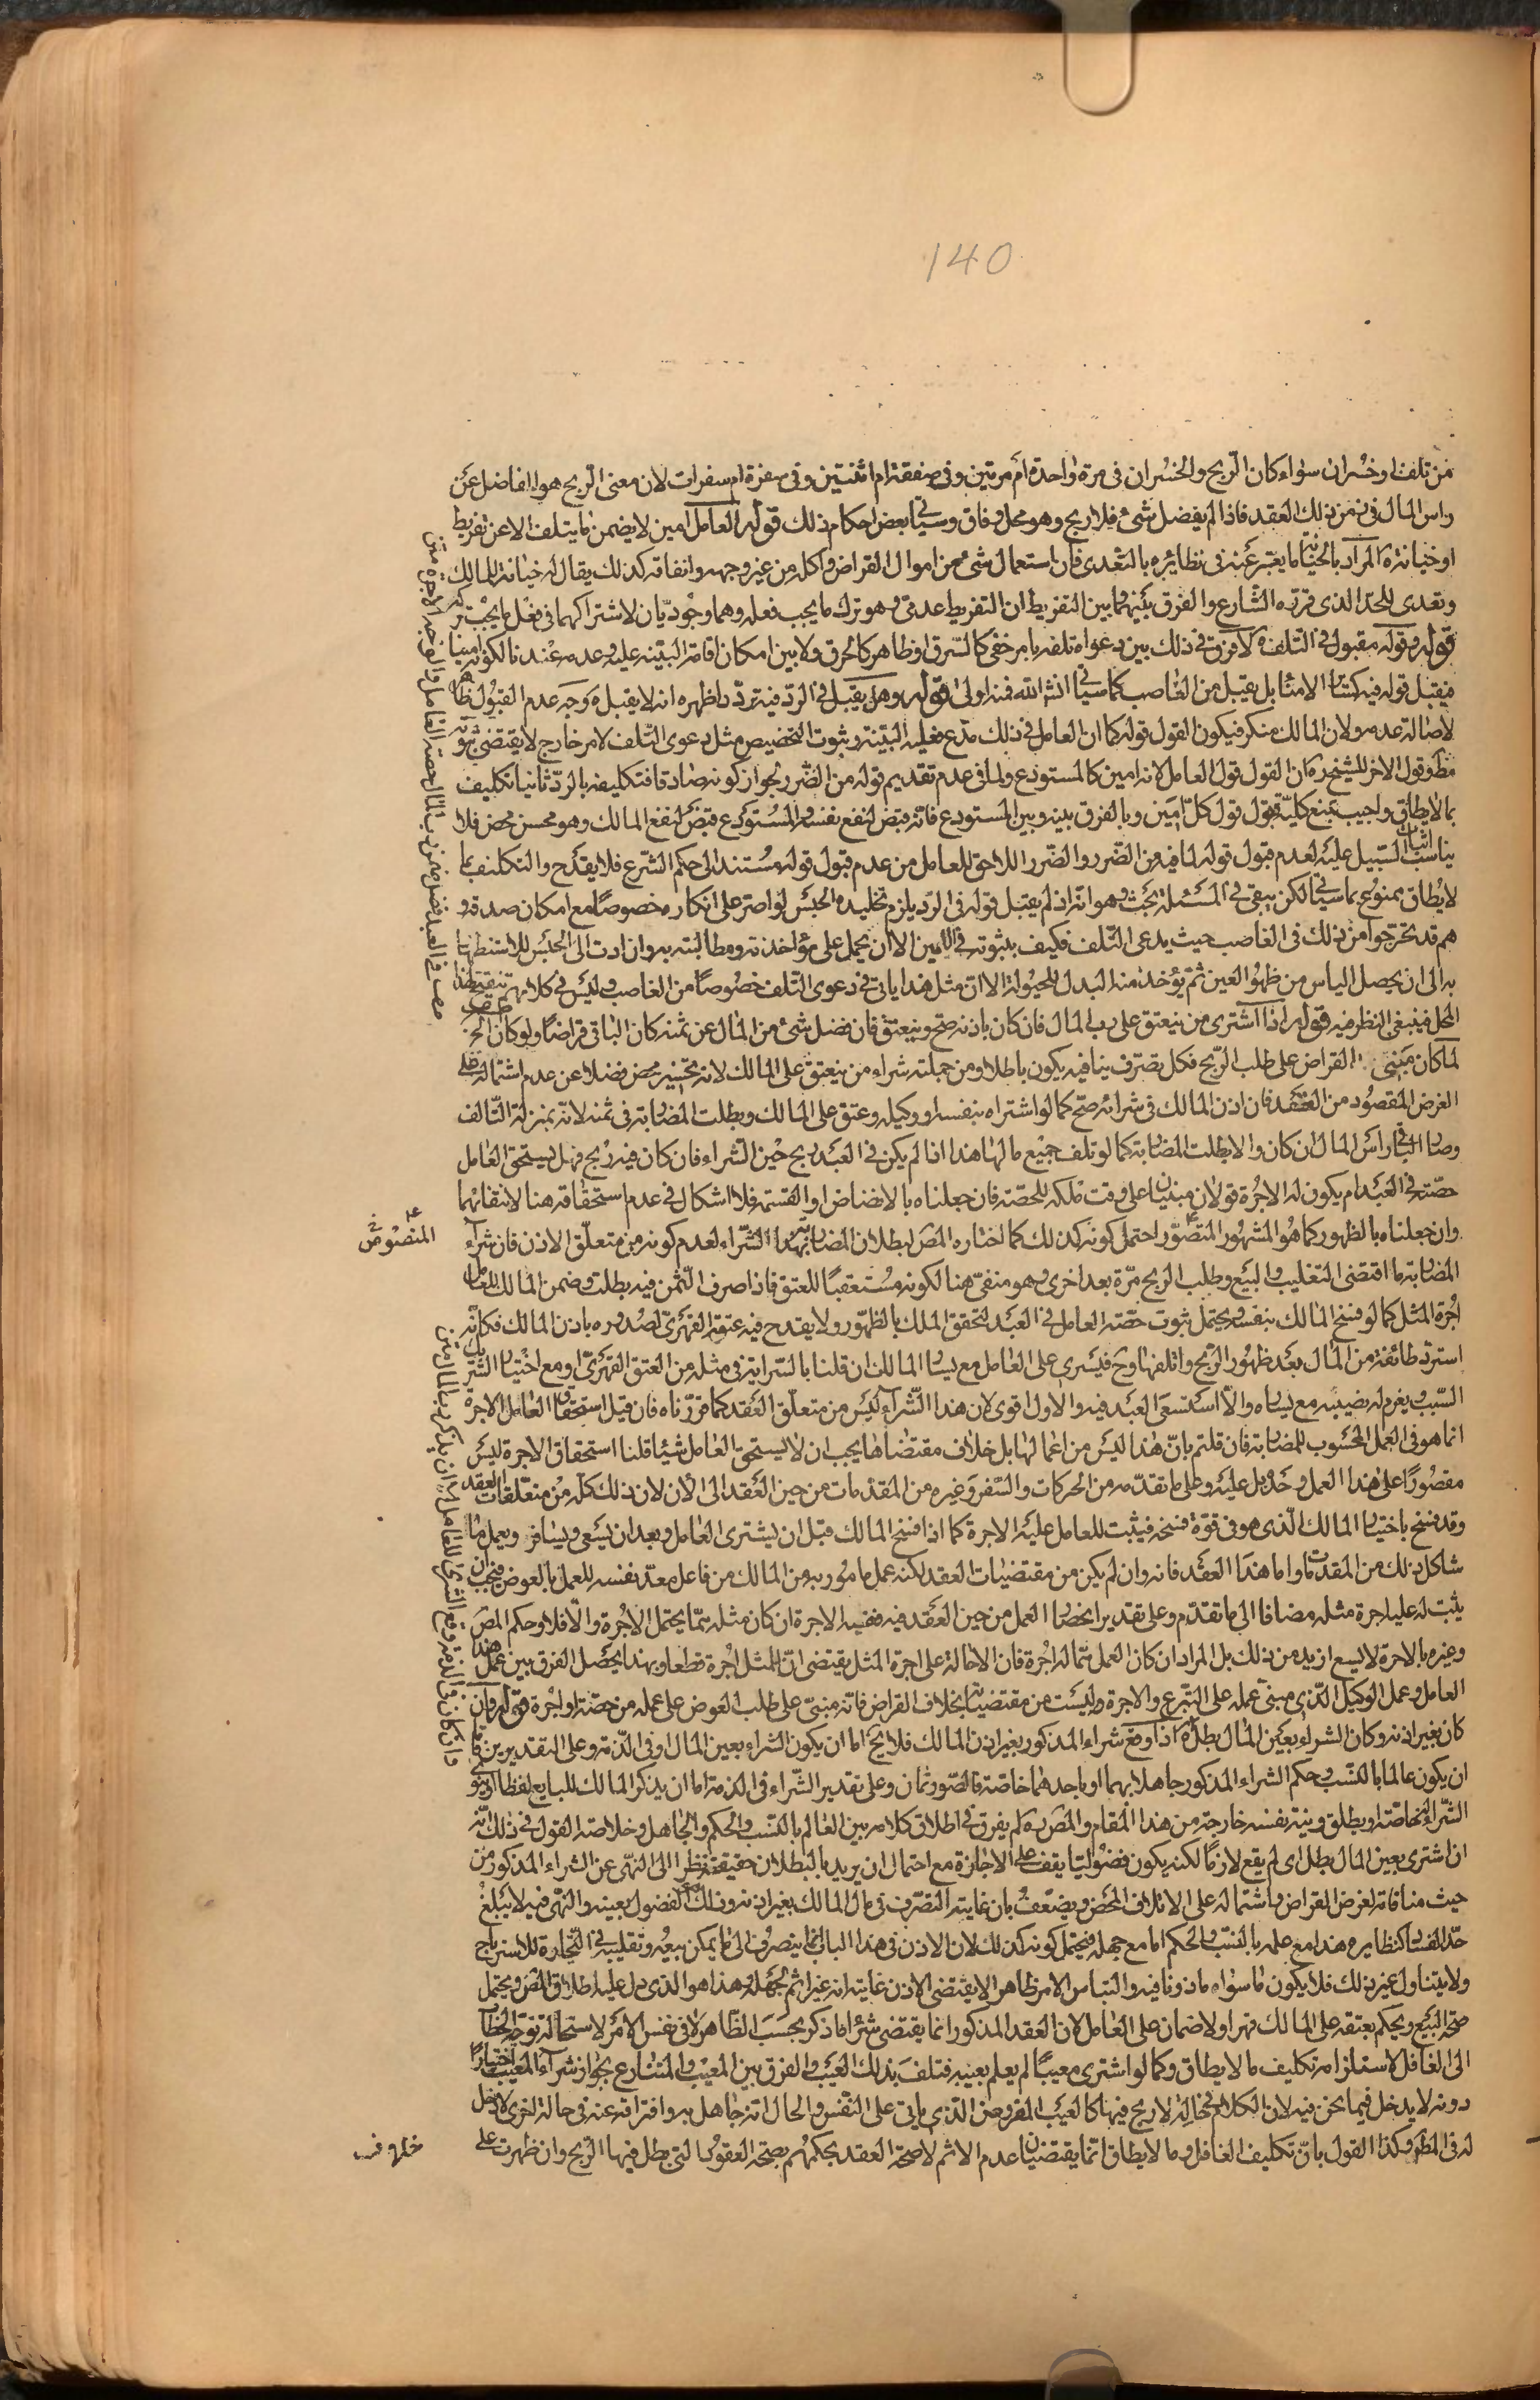 140
من تلف او خسران سواء كان الربح والخسران فى مرة واحدة ام مرتين وفى صفقة ام اثنتين وفى سفرة ام سفرات لان معنى الربح هو الفاضل عن
راس المال فى زمن ذلك العقد فاذا لم يفضل شئ فلا ربح وهو محل وفاق وسياتى بعض احكام ذلك قوله العامل امين لا يضمن ما يتلف الا عن تفريط
او خيانة المراد بالخيانة ما يعبر عنه فى نظائره بالتعدى فان استعمال شئ من اموال القراض واكله من غير وجهه وانفاقه كذلك يقال له خيانة للمالك
وتعدى للحد الذى قرره الشارع والفرق بينهما وبين التفريط ان التفريط عدمى وهو ترك ما يجب فعله وهما وجوديان لاشتراكهما فى فعل ما يجب تركه
قوله وقوله مقبول فى التلف لا فرق فى ذلك بين دعواه تلفه بامر خفى كالسرق او ظاهر كالحرق ولا بين امكان اقامة البينة عليه وعدمه عندنا لكونه امينا
فيقبل قوله فيه كسائر الامناء بل يقبل من الغاصب كما سياتى انشاء الله فهنا اولى قوله وهل يقبل فى الرد فيه تردد اظهره انه لا يقبل وجه عدم القبول ظاهر
لاصالة عدمه ولان المالك منكر فيكون القول قوله كما ان العامل فى ذلك مدع فعليه البينة وثبوت التخصيص مثل دعوى التلف لامر خارج لا يقتضى ثبوته
مطلقا وقول الاخر للشيخ ره ان القول قول العامل لانه امين كالمستودع ولما فى عدم تقديم قوله من الضرر لجواز كونه صادقا فتكليفه بالرد ثانيا تكليف
بما لا يطاق واجيب بمنع كلية قبول قول كل امين وبالفرق بينه وبين المستودع فانه قبض لنفع نفسه والمستودع قبض لنفع المالك وهو محسن محض فلا
يناسب اثبات السبيل عليه لعدم قبول قوله لما فيه من الضرر والضرر اللاحق للعامل من عدم قبول قوله مستند الى حكم الشرع فلا يقدح والتكليف بما
لا يطاق ممنوع بما سياتى لكن يبقى فى المسئلة بحث وهو انه اذا لم يقبل قوله فى الرد يلزم تخليده الحبس لو اصر على انكاره خصوصا مع امكان صدقه و
هم قد تحرجوا من ذلك فى الغاصب حيث يدعى التلف فكيف يثبتونه فى الامين الا ان يحمل على مؤاخذته ومطالبته به وان ادت الى الحبس للاستظهار
به الى ان يحصل الياس من ظهور العين ثم يؤخذ منه البدل للحيلولة الا ان مثل هذا ياتى فى دعوى التلف خصوصا من الغاصب وليس فى كلامهم تنقيح لهذا
المحل فينبغى النظر فيه قوله اذا اشترى من ينعتق على رب المال فان كان باذنه صح وينعتق فان فضل شئ من المال عن ثمنه كان الباقى قراضا ولو كان الخ
لما كان مبنى القراض على طلب الربح فكل تصرف ينافيه يكون باطلا ومن جملته شراء من ينعتق على المالك لانه تخسير محض فضلا عن عدم اشتماله على
الغرض المقصود من العقد فان اذن المالك فى شرائه صح كما لو اشتراه بنفسه او وكيله وعتق على المالك وبطلت المضاربة فى ثمنه لانه بمنزلة التالف
وصار الباقى راس المال ان كان والا بطلت المضاربة كما لو تلف جميع مالها هذا اذا لم يكن فى العبد ربح حين الشراء فان كان فيه ربح فهل يستحق العامل
حصته فى العبد ام يكون له الاجرة قولان مبنيان على وقت ملكه للحصة فان جعلناه بالانضاض او القسمة فلا اشكال فى عدم استحقاقه هنا لانتفائهما
وان جعلناه بالظهور كما هو المشهور المتصور احتمل كونه كذلك كما اختاره المص لبطلان المضاربة بهذا الشراء لعدم كونه من متعلق الاذن فان شراء
المنصوص
المضاربة ما اقتضى التغليب والبيع وطلب الربح مرة بعد اخرى وهو منفى هنا لكونه مستعقبا للعتق فاذا صرف الثمن فيه بطلت وضمن المالك للعامل
اجرة المثل كما لو فسخ المالك بنفسه ويحتمل ثبوت حصة العامل فى العبد لتحقق الملك بالظهور ولا يقدح فيه عتقه القهرى لصدوره باذن المالك فكانه
استرد طائفة من المال بعد ظهور الربح واتلفها وح فيسرى على العامل مع يسار المالك ان قلنا بالسراية فى مثله من العتق القهرى او مع اختيار الشريك
السبب يغرم له نصيبه مع يساره والا استسعى العبد فيه والاول اقوى لان هذا الشراء ليس من متعلق العقد كما قررناه فان قيل استحقاق العامل الاجرة
انما هو فى العمل المحسوب للمضاربة فان قلتم بان هذا ليس من اعمالها بل خلاف مقتضاها يجب ان لا يستحق العامل شيئا قلنا استحقاق الاجرة ليس
مقصورا على هذا العمل وحده بل عليه وعلى ما تقدمه من الحركات والسفر وغيره من المقدمات من حين العقد الى الان لان ذلك كله من متعلقات العقد
وقد فسخ باختيار المالك الذى هو فى قوة فسخه فيثبت للعامل عليه الاجرة كما اذا فسخ المالك قبل ان يشترى العامل وبعد ان يسعى ويسافر ويعمل ما
شاكل ذلك من المقدمات واما هذا العقد فانه وان لم يكن من مقتضيات العقد لكنه عمل مامور به من المالك من فاعل معد نفسه للعمل بالعوض فيجب ان
يثبت له عليه اجرة مثله مضافا الى ما تقدم وعلى تقدير انحصار العمل من حين العقد فيه ففيه الاجرة ان كان مثله مما يحتمل الاجرة والا فلا وحكم المص
وغيره بالاجرة لا يسع ازيد من ذلك بل المراد ان كان العمل مما له اجرة فان الاحالة على اجرة المثل يقتضى ان للمثل اجرة قطعا وبهذا يحصل الفرق بين عمل هذا
العامل وعمل الوكيل الذى مبنى عمله على التبرع والاجرة وليست من مقتضياته بخلاف القراض فانه مبنى على طلب العوض على عمله من حصة او اجرة قوله وان
كان بغير اذنه وكان الشراء بعين المال بطل اذا وقع شراء المذكور بغير اذن المالك فلا يخ اما ان يكون الشراء بعين المال او فى الذمة وعلى التقديرين فاما
ان يكون عالما بالنسب وحكم الشراء المذكور جاهلا بهما او باحدهما خاصة فالصور ثمان وعلى تقدير الشراء فى الذمة اما ان يذكر المالك للبايع لفظا او ينوى
الشراء له خاصة او يطلق ونية نفسه خارجة من هذا المقام والمص ره لم يفرق فى اطلاق كلامه بين العالم بالنسب والحكم والجاهل وخلاصة القول فى ذلك انه
ان اشترى بعين المال بطل اى لم يقع لازما لكنه يكون فضوليا يقف على الاجازة مع احتمال ان يريد بالبطلان حقيقته نظرا الى النهى عن الشراء المذكور من
حيث منافاته لغرض القراض واشتماله على الاتلاف المحض ويضعف بان غايته التصرف فى مال المالك بغير اذنه وذلك هو الفضولى بعينه والنهى فيه لا يبلغ
حد الفساد كنظايره هذا مع علمه بالنسب والحكم اما مع جهله فيحتمل كونه كذلك لان الاذن فى هذا الباب انما ينصرف الى ما يمكن بيعه وتقليبه فى التجارة للاسترباح
ولا يتناول غير ذلك فلا يكون ما سواه ماذونا فيه والتباس الامر ظاهرا لا يقتضى الاذن غايته انه غير اثم لجهله وهذا هو الذى دل عليه اطلاق المص ويحتمل
صحة البيع ويحكم بعتقه على المالك قهرا ولا ضمان على العامل لان العقد المذكور انما يقتضى شراء ما ذكر بحسب الظاهر لا فى نفس الامر لاستحالة توجه الخطاب
الى الغافل لاستلزامه تكليف ما لا يطاق وكما لو اشترى معيبا لم يعلم بعيبه فتلف بذلك العيب والفرق بين المعيب والمتنازع بجواز شراء المعيب اختيارا
دونه لا يدخل فيما نحن فيه لان الكلام فى حالة لا ربح فيها كالعيب المفروض الذى ياتى على النفس والحال انه جاهل به وافتراقه عنه فى حالة اخرى لا دخل
له فى المطلوب وكذا القول بان تكليف الغافل وما لا يطاق انما يقتضيان عدم الاثم لا صحة العقد بحكمهم بصحة العقود التى بطل فيها الربح وان ظهرت على